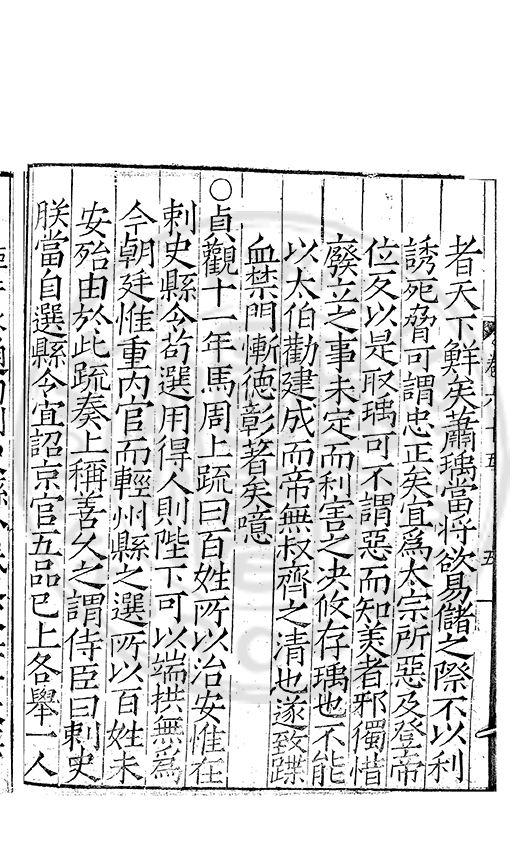 者天下鮮矣蕭瑀當將欲易儲之際不以利
誘死脅可謂忠正矣宜爲太宗所惡及登帝
位反以是取瑀可不謂惡而知美者邪獨惜
廢立之事未定而利害之决攸存瑀也不能
以太伯勸建成而帝無叔齊之清也遂致蹀
血禁門慚徳彰著矣噫
〇貞觀十一年馬周上疏曰百姓所以治安惟在
刺史縣令苟選用得人則陛下可以端拱無爲
今朝廷惟重内官而輕州縣之選所以百姓未
安殆由於此疏奏上稱善久之謂侍臣曰刺史
朕當自選縣令宜詔京官五品已上各舉一人